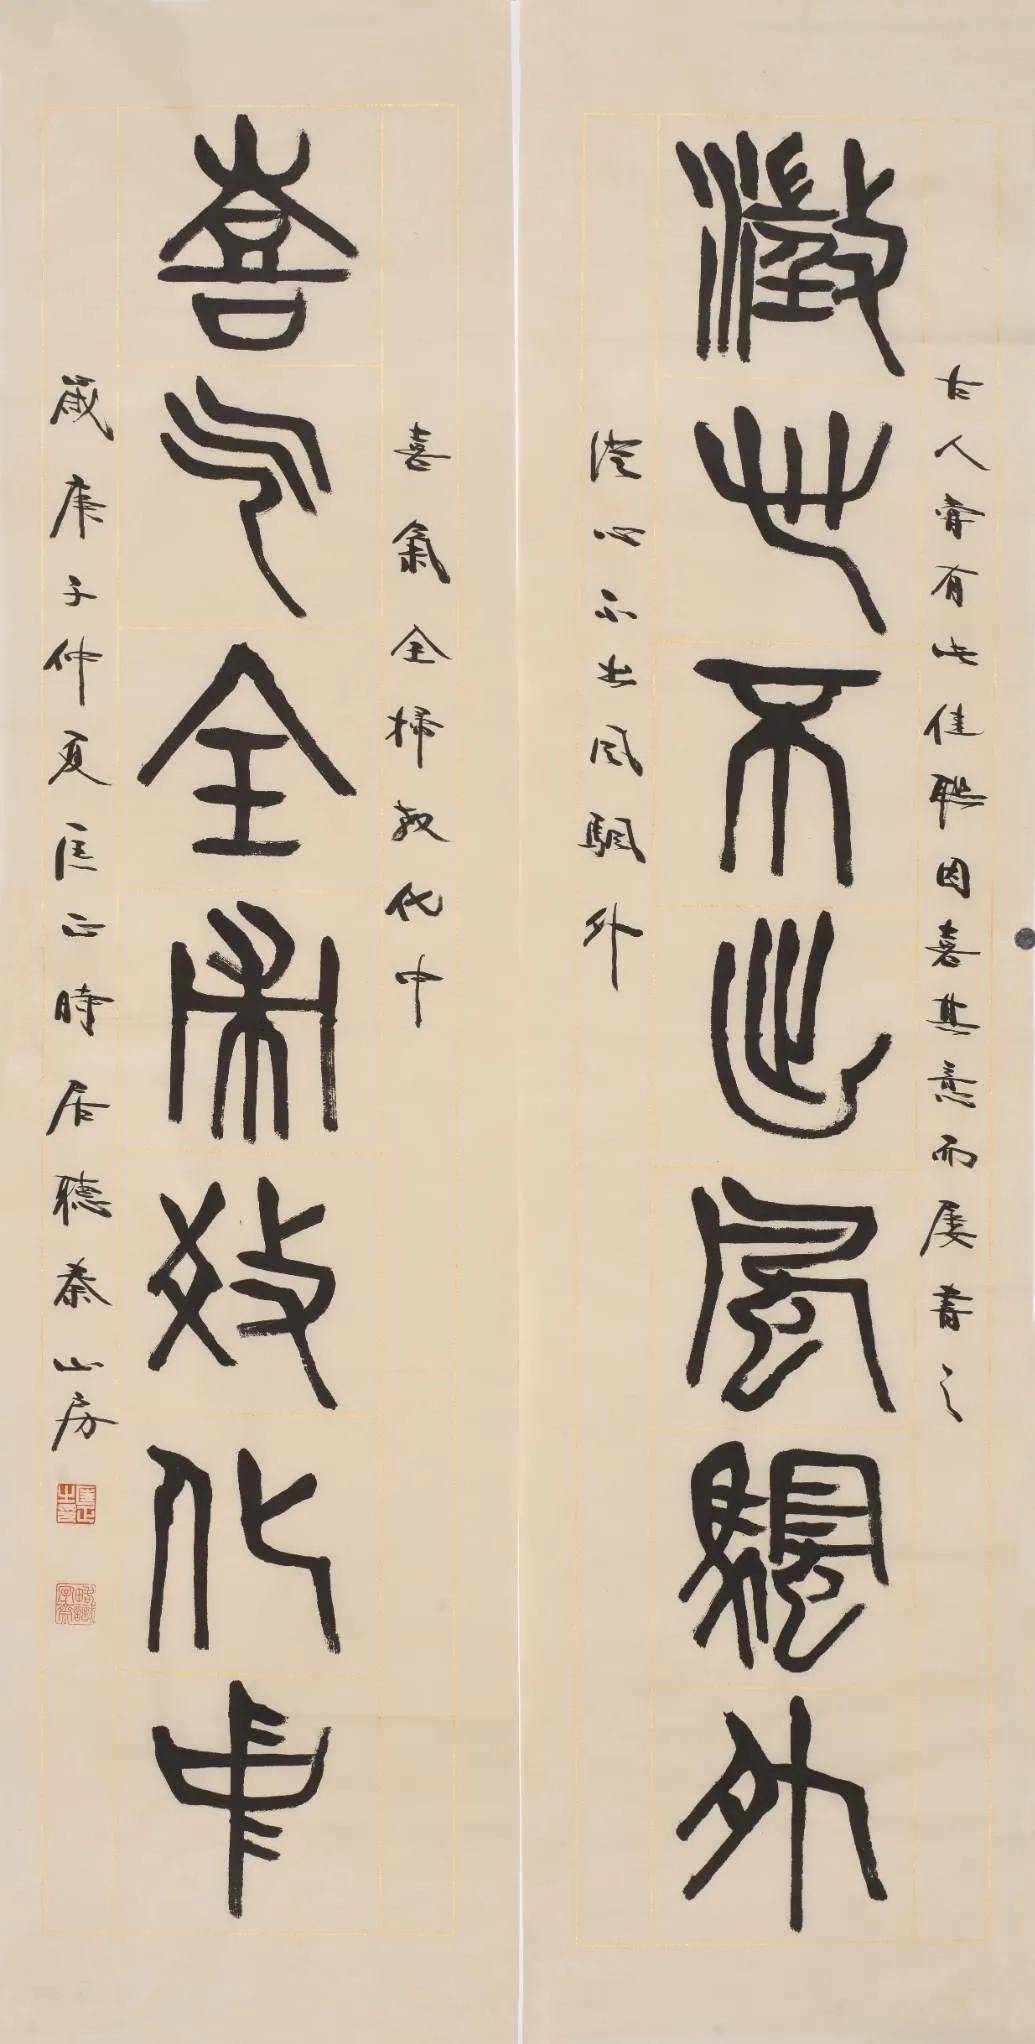 古人嘗有此佳聯因喜其意而屢書之
澂心不出風颿外
澄心不出風颿外
喜氣全歸教化中
喜气全歸教化中
歲庚子仲夏匡正時居聽秦山房
匡正之印